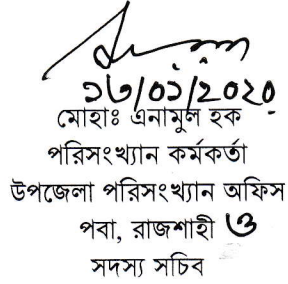 ১৩/০১/২০২০
মোহাঃ এনামুল হক
পরিসংখ্যান কর্মকর্তা
উপজেলা পরিসংখ্যান অফিস
পবা, রাজশাহী ও
সদস্য সচিব